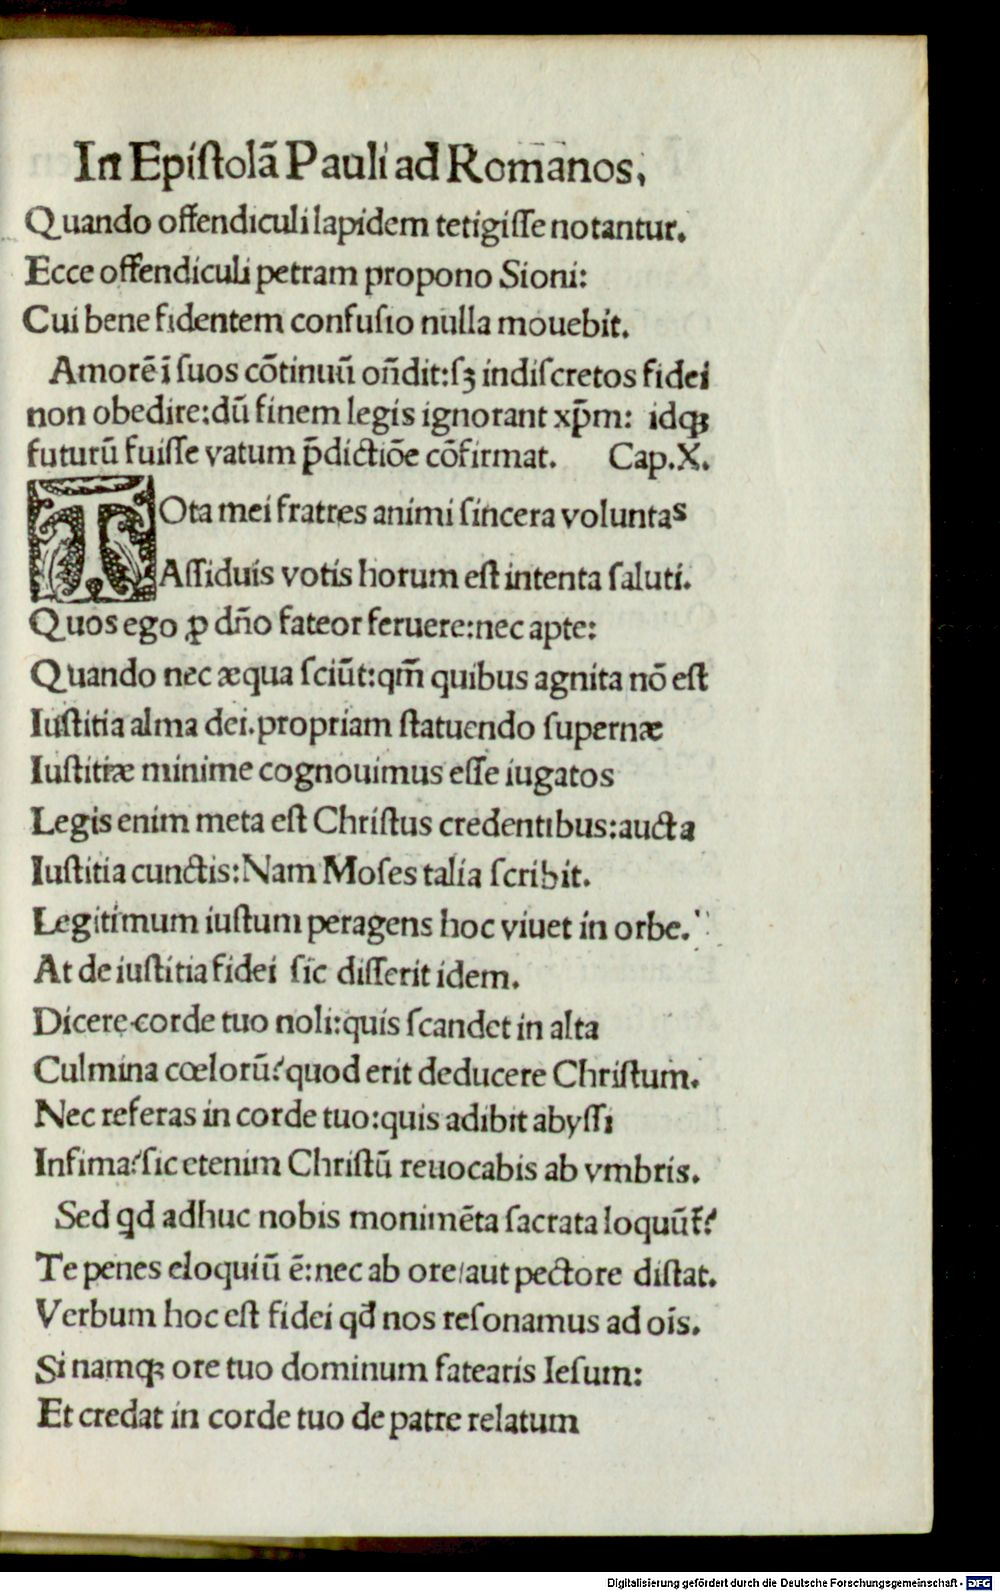 In Epiſtolā Pauli ad Romanos,
Quando offendiculi lapidem tetigiſſe notantur.
Ecce offendiculi petram propono Sioni:
Cui bene fidentem confuſio nulla mouebit.
Amorē ī ſuos cōtinuū oñdit: ſꝫ indiſcretos fidei
non obedire: dū finem legis ignorant xp̄m: idqꝫ
futurū fuiſſe vatum p̄dictiōe cōfirmat. Cap.X.
TOta mei fratres animi ſincera voluntas
Aſſiduis votis horum eſt intenta ſaluti.
Quos ego ꝓ dño fateor feruere: nec apte:
Quando nec æqua ſciūt: qm̄ quibus agnita nō eſt
Iuſtitia alma dei. propriam ſtatuendo ſupernæ
Iuſtitiæ minime cognouimus eſſe iugatos
Legis enim meta eſt Chriſtus credentibus: aucta
Iuſtitia cunctis: Nam Moſes talia ſcribit.
Legitimum iuſtum peragens hoc viuet in orbe.
At de iuſtitia fidei ſic diſſerit idem.
Dicere corde tuo noli: quis ſcandet in alta
Culmina cœlorū? quod erit deducere Chriſtum.
Nec referas in corde tuo: quis adibit abyſſi
Infima? ſic etenim Chriſtū reuocabis ab vmbris.
Sed qd adhuc nobis monimēta ſacrata loquūt̄?
Te penes eloquiū ē: nec ab ore/ aut pectore diſtat.
Verbum hoc eſt fidei qđ nos reſonamus ad oīs.
Si namqꝫ ore tuo dominum fatearis Ieſum:
Et credat in corde tuo de patre relatum
Digitalisierung gefördert durch die Deutsche Forschungsgemeinschaft - DFG